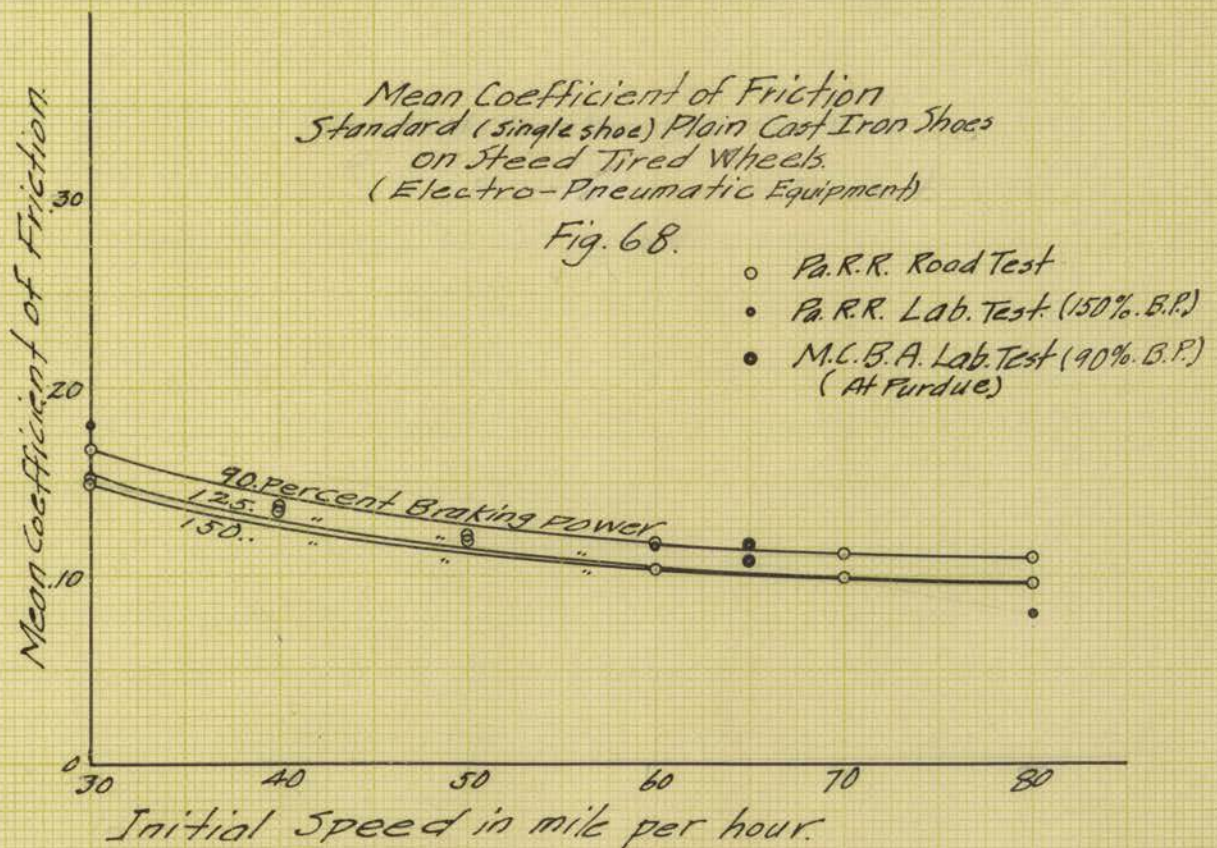 Mean Coefficient of Friction
Standard (single shoe) Plain Cast Iron Shoes
on Steed Tired Wheels.
(Electro-Pneumatic Equipment)
Fig. 68.
Pa.R.R. Road Test
Pa.R.R. Lab. Test. (150%. B.P.)
M.C.B.A. Lab. Test (90%. B.P.)
(At Purdue)
Mean Coefficient of Friction.
.30
.20
.10
0
90. Percent Braking Power
125. " " "
150.. " " "
30 40 50 60 70 80
Initial Speed in mile per hour.